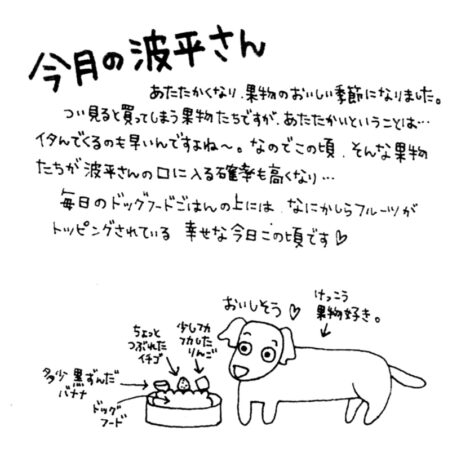 今月の波平さん
あたたかくなり、果物のおいしい季節になりました。
つい見ると買ってしまう果物たちですが、あたたかいということは…
イタんでくるのも早いんですよね〜。なのでこの頃、そんな果物
たちが波平さんの口に入る確率も高くなり…
毎日のドッグフードごはんの上には、なにかしらフルーツが
トッピングされている 幸せな今日この頃です♡
おいしそう♡
けっこう
果物好き。
ちょっと
つぶれた
イチゴ
少しフカ
フカした
りんご
多少黒ずんだ
バナナ
ドッグ
フード